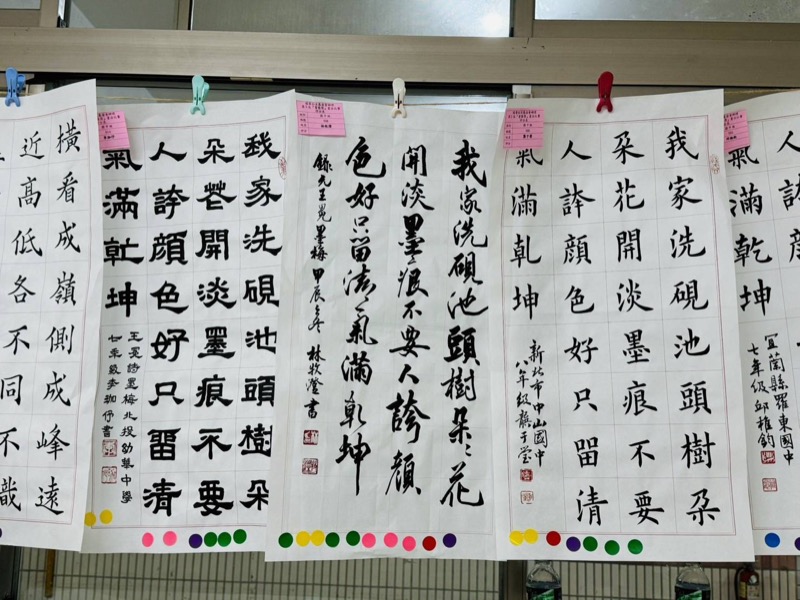 人誇
氣滿乾坤
宜蘭縣羅東國中
七年級邱稚鈞
我家洗硯池頭樹朵
朵花開淡墨痕不要
人誇顏色好只留清
氣滿乾坤
新北市中山國中
八年級龔于瑩
我家洗硯池頭樹朵〻花
開淡墨痕不要人誇顏
色好只留清氣滿乾坤
錄元王冕墨梅 甲辰冬 林牧澄書
我家洗硯池頭樹朵
朵花開淡墨痕不要
人誇顏色好只留清
氣滿乾坤
王冕詩墨梅北投幼華中學
七年級李珈伃書
橫看成嶺側成峰遠
近高低各不同不識